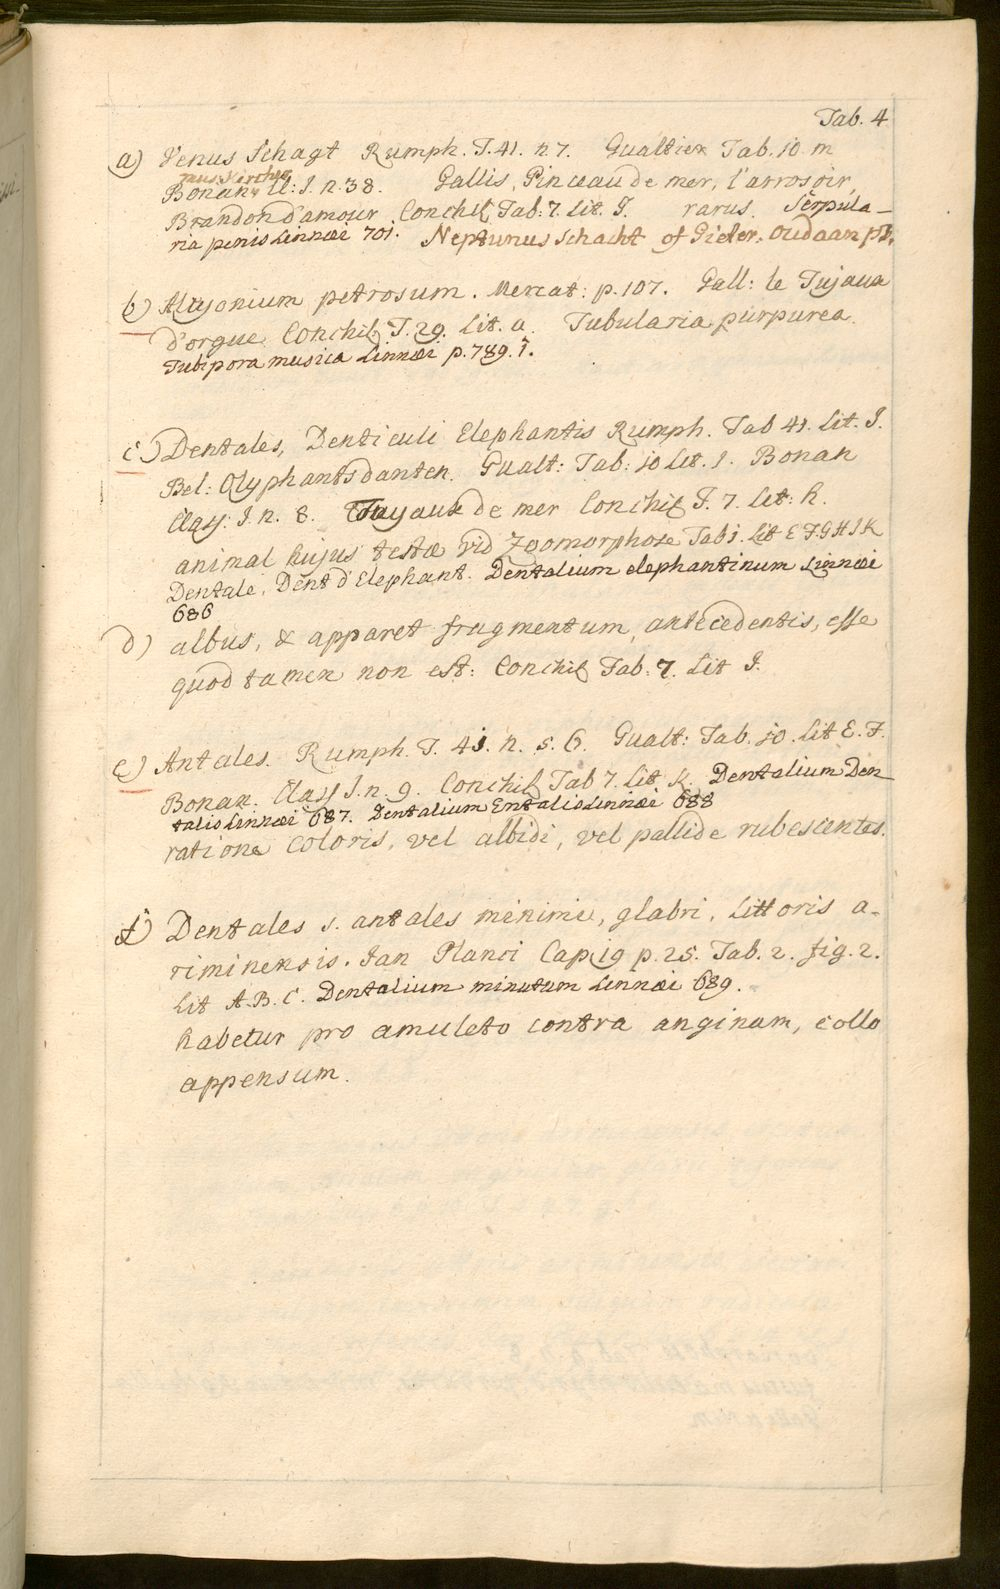 Tab. 4
a) Venus Schagt Rumph. T. 41. n. 7. Gualtier Tab. 10. m
Bonan. Cl: I. n. 38. Gallis, Pinceau de mer, l'arrosoir,
Brandon d'amour Conchil Tab: 7. Lit. I. rarus. Serpula-
ria penis Linnæi 701. Neptunus Schacht of Gieter. Oudaan
b) Alcyonium petrosum. Mercat: p. 107. Gall: le Tujaua
d'orgue Conchil T. 29. Lit. a. Tubularia purpurea.
Tubipora musica Linnæi p. 789. 1.
c) Dentales, Denticuli Elephantis Rumph. Tab 41. Lit. I.
Bel: Olyphantsdanten. Gualt: Tab: 10 Lit. I. Bonan
Class: I. n. 8. Tuyaux de mer Conchil T. 7. Let: h.
animal hujus testæ vid Zoomorphose Tab 1. Lit E F. G H I K
Dentale, Dent d'Elephant. Dentalium elephantinum Linnæi
686
d) albus, & apparet fragmentum antecedentis, esse
quod tamen non est: Conchil Tab: 7. Lit I.
e) Antales. Rumph. T. 41. n. 5. 6. Gualt: Tab. 10. Lit E. F.
Bonan. Class I. n. 9. Conchil Tab 7. Lit K. Dentalium Den
talis Linnæi 687. Dentalium Entalis Linnæi 688
ratione coloris, vel albidi, vel pallide rubescentes.
f) Dentales s. antales minimi, glabri, Littoris a-
riminensis. Jan Planci Cap 19 p. 25. Tab. 2. fig. 2.
Lit A. B. C. Dentalium minutum Linnæi 689.
habetur pro amuleto contra anginam, collo
appensum.